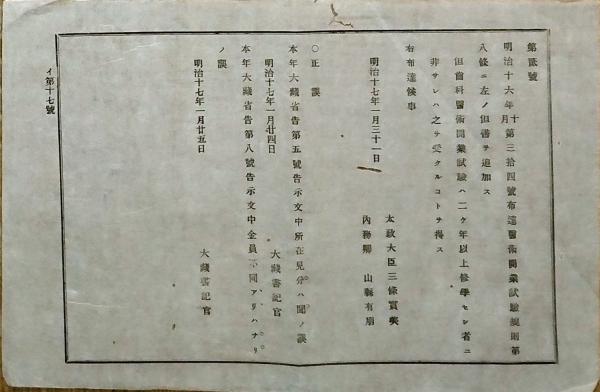 第貳號
明治十六年十月第三拾四號布達醫術開業試驗規則第
八條ニ左ノ但書ヲ追加ス
但齒科醫術開業試驗ハ二ケ年以上修學セシ者ニ
非サレハ之ヲ受クルコトヲ得ス
右布達候事
明治十七年一月三十一日
太政大臣三條實美
內務卿 山縣有朋
〇正誤
本年大藏省告第五號告示文中所在見分ハ聞ノ誤
明治十七年一月廿四日
大藏書記官
本年大藏省告第八號告示文中金員不同アリハナリ
ノ誤
明治十七年一月廿五日
大藏書記官
イ第十七號